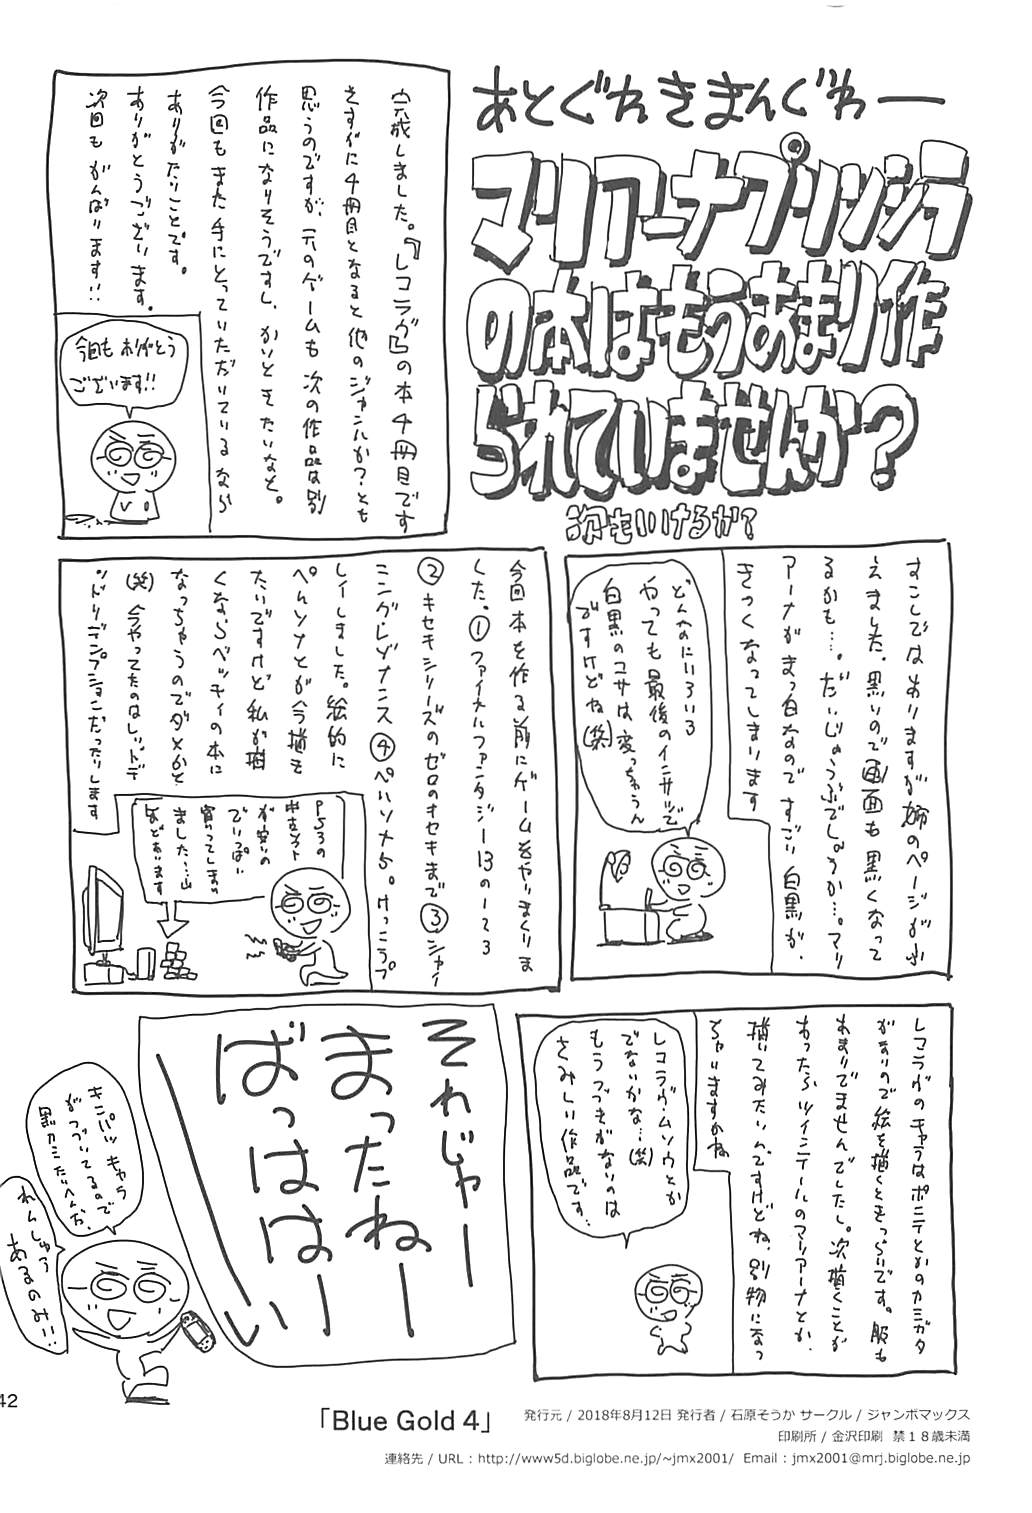 あとぐわきまんぐわー
マリアーナプリンシラ
の本はもうあまり作
られていませんか?
次もいけるか?
完成しました。『レコラヴ』の本4冊目です
さすがに4冊目となると他のジャンルか?とも
思うのですが、元のゲームも次の作品は別
作品になりそうですし、かいときたいなと。
今回もまた手にとっていただいているなら
ありがたいことです。
ありがとうございます。
次回もがんばります!!
今回もありがとう
ございます!!
すこしではありますが姉のページがふ
えました。黒いので画面も黒くなって
るかも…。だいじょうぶでしょうか…。マリ
アーナがまっ白なのですごい白黒が、
きつくなってしまいます
どんなにいろいろ
やっても最後のインサツで
白黒のコサは変っちゃうん
ですけどね(笑)
今回本を作る前にゲームをやりまくりま
した。①ファイナルファンタジー13の1~3
②キセキシリーズのゼロのキセキまで③シャイ
ニング・レゾナンス④ペルソナ5。けっこうプ
レイしました。絵的に
ぺルソナとか今描き
たいですけど私が描
くならベッティの本に
なっちゃうのでダメかと
(笑)今やってたのはレッドデ
ッドリデンプションだったりします
PS3の
中古ソフト
が安いの
でいっぱい
買ってしまい
ました…山
ほどあります
レコラヴのキャラはポニテとかのカミガタ
がないので絵を描くときつらいです。服も
あまりでませんでしたし。次描くことが
あったらツインテールのマリアーナとか、
描いてみたいんですけどね、別物になっ
ちゃいますかね
レコラヴ・ムソウとか
でないかな…(笑)
もうつづきがないのは
さみしい作品です…
それじゃー
まったねー
ばっははーい
キンパツキャラ
がつづいてるので
黒カミたいへんだ、
れんしゅう
あるのみ!!
42
「Blue Gold 4」
発行元 / 2018年8月12日 発行者 / 石原そうか サークル / ジャンボマックス
印刷所 / 金沢印刷 禁18歳未満
連絡先 / URL : http://www5d.biglobe.ne.jp/~jmx2001/ Email : jmx2001@mrj.biglobe.ne.jp